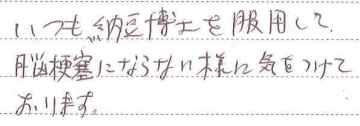 いつも納豆博士を服用して、
脳梗塞にならない様に気をつけて
おります。